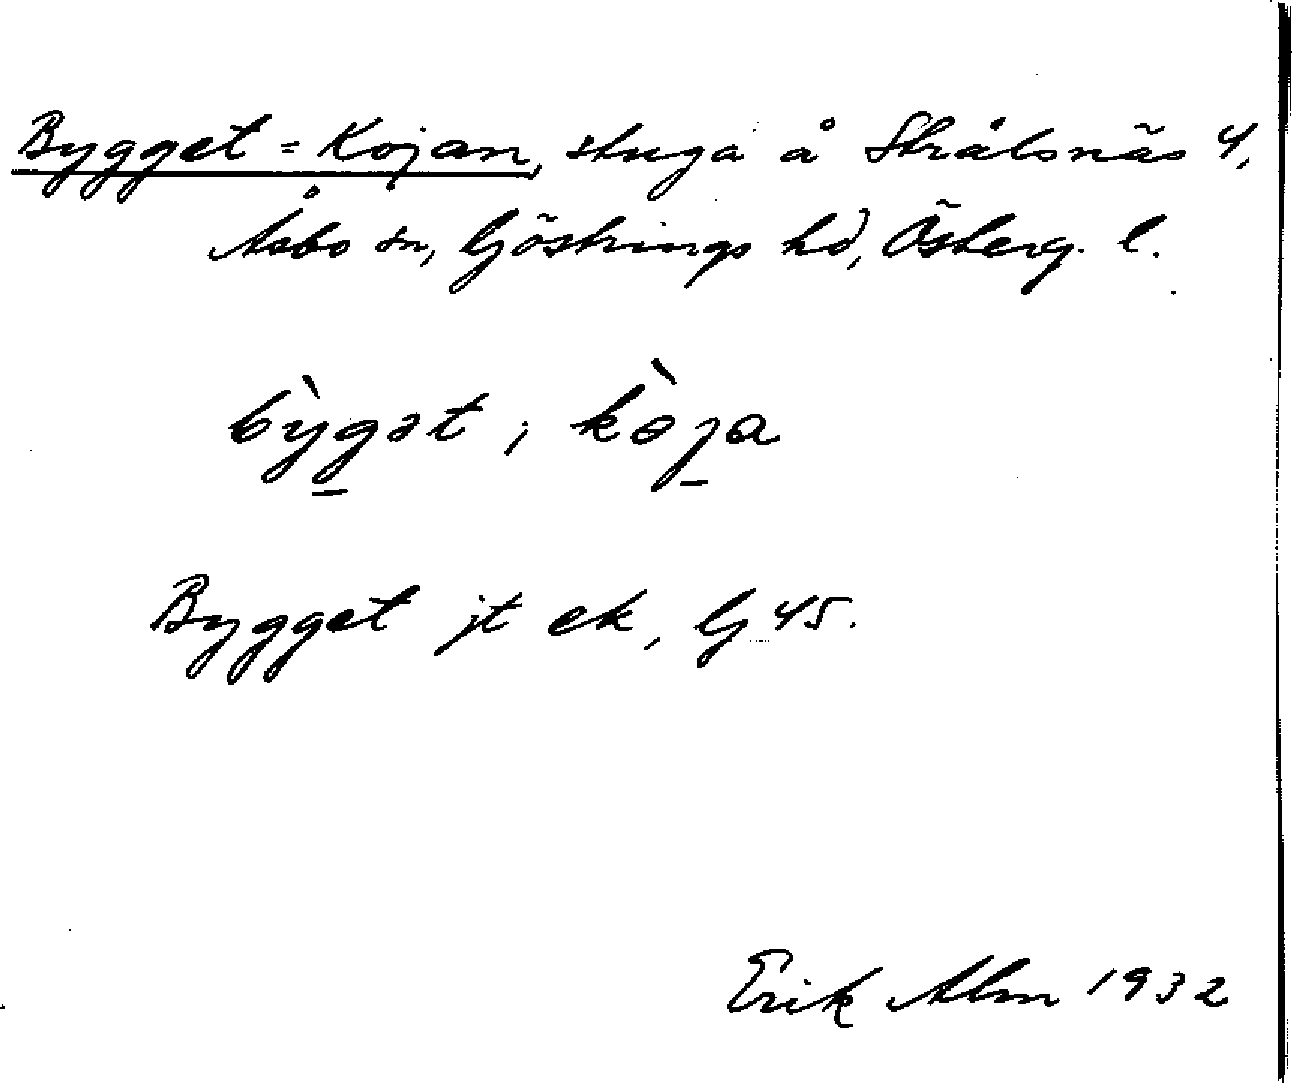 Bygget = Kojan, stuga å Strålsnäs 4,
Åsbo sn, Göstrings hd, Österg. l.
bỳgət, kòja
Bygget jt ek, G 45.
Erik Alm 1932